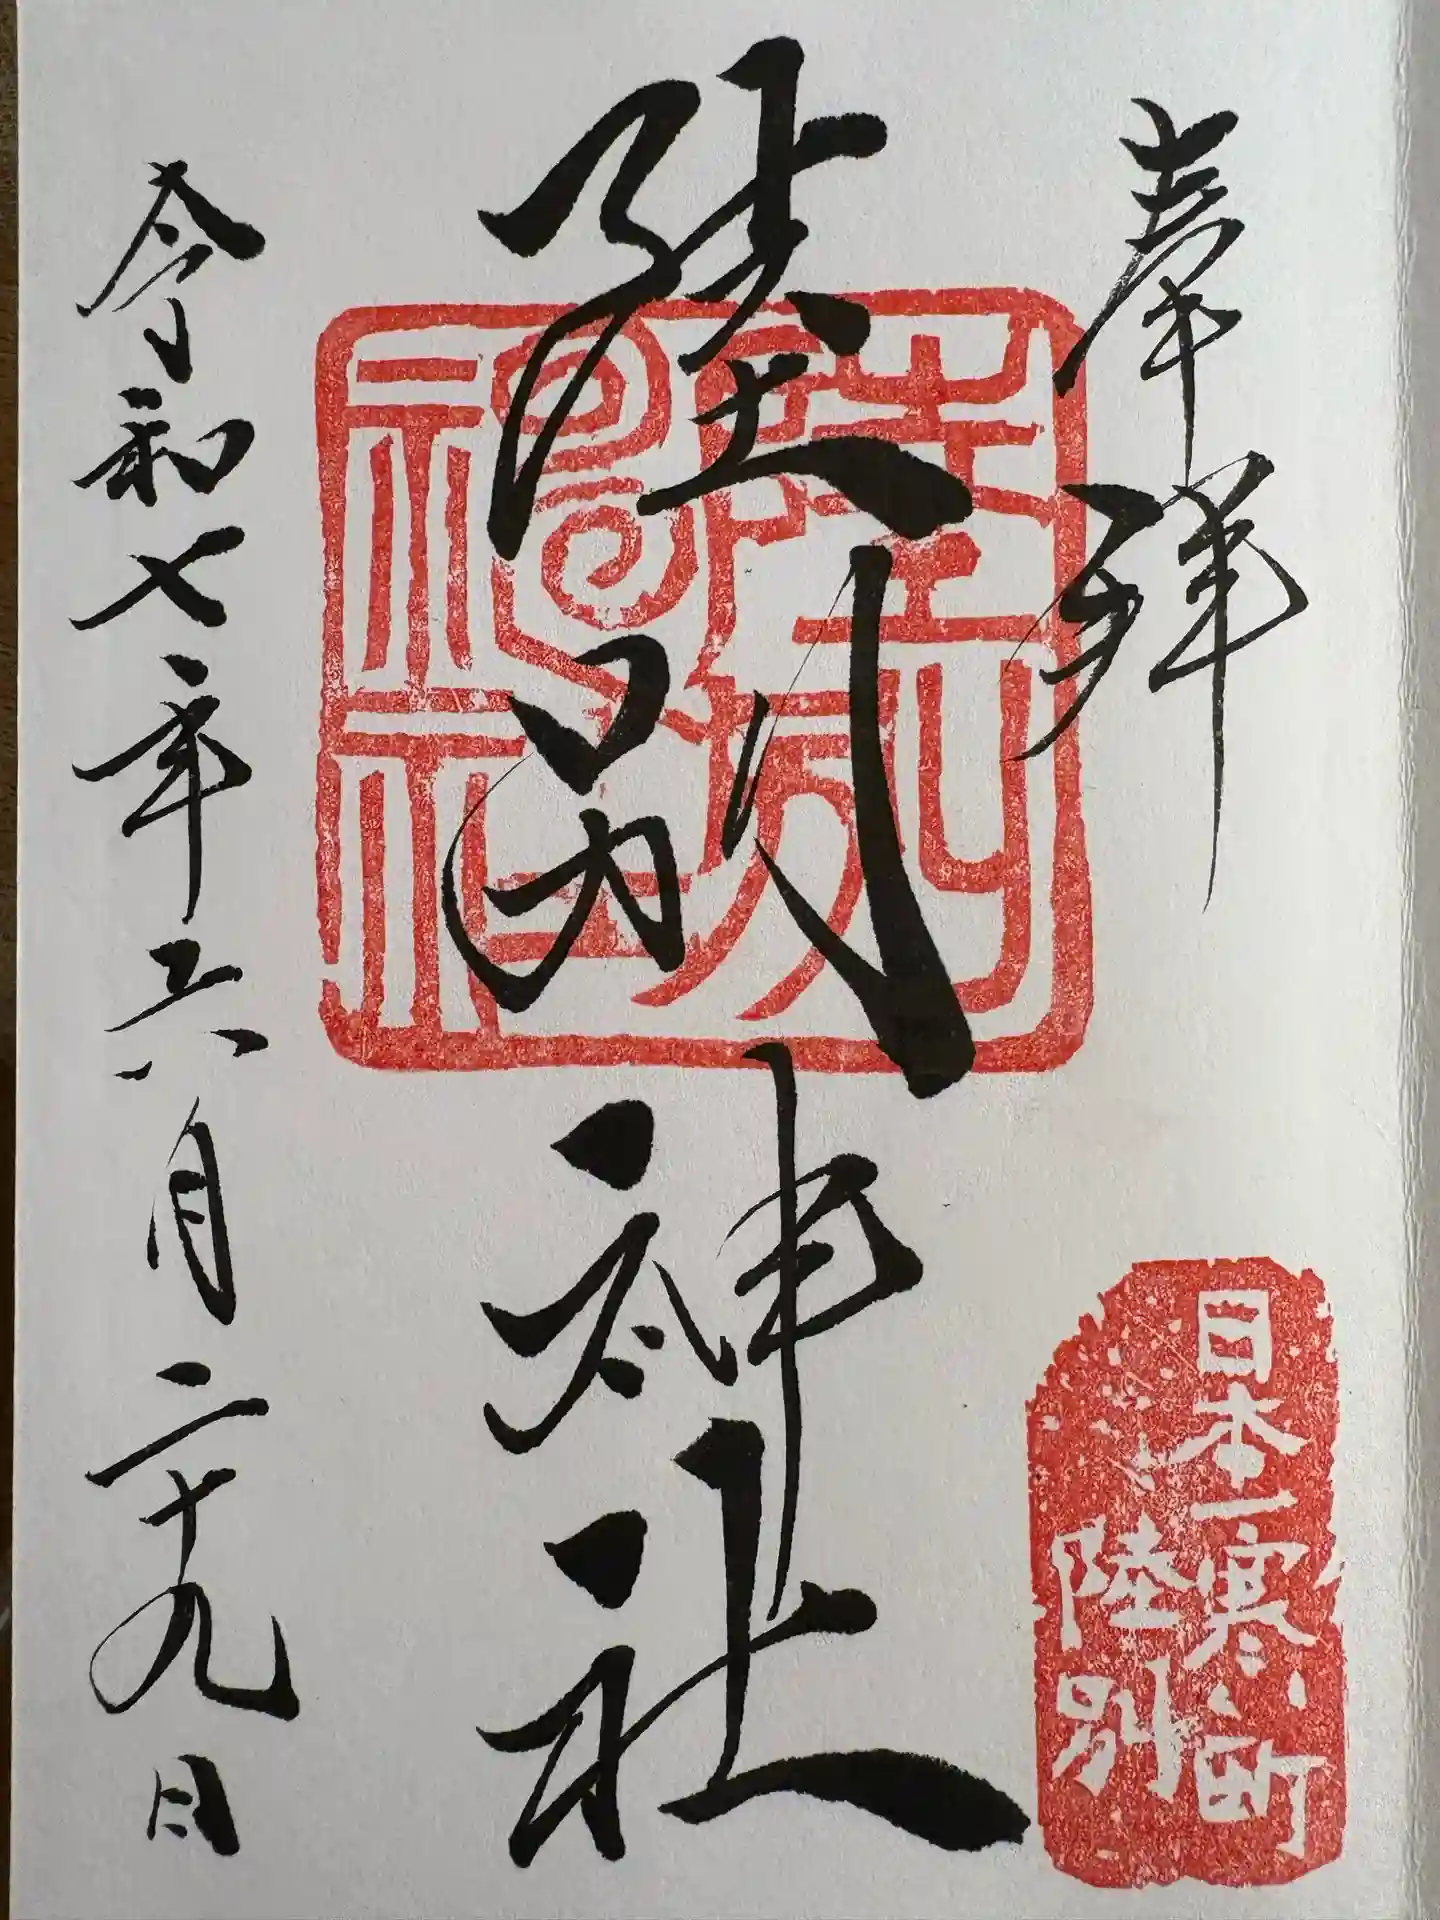 奉拝
日本一寒い町
陸別
陸別神社
陸別
神社
令和七年六月二十九日